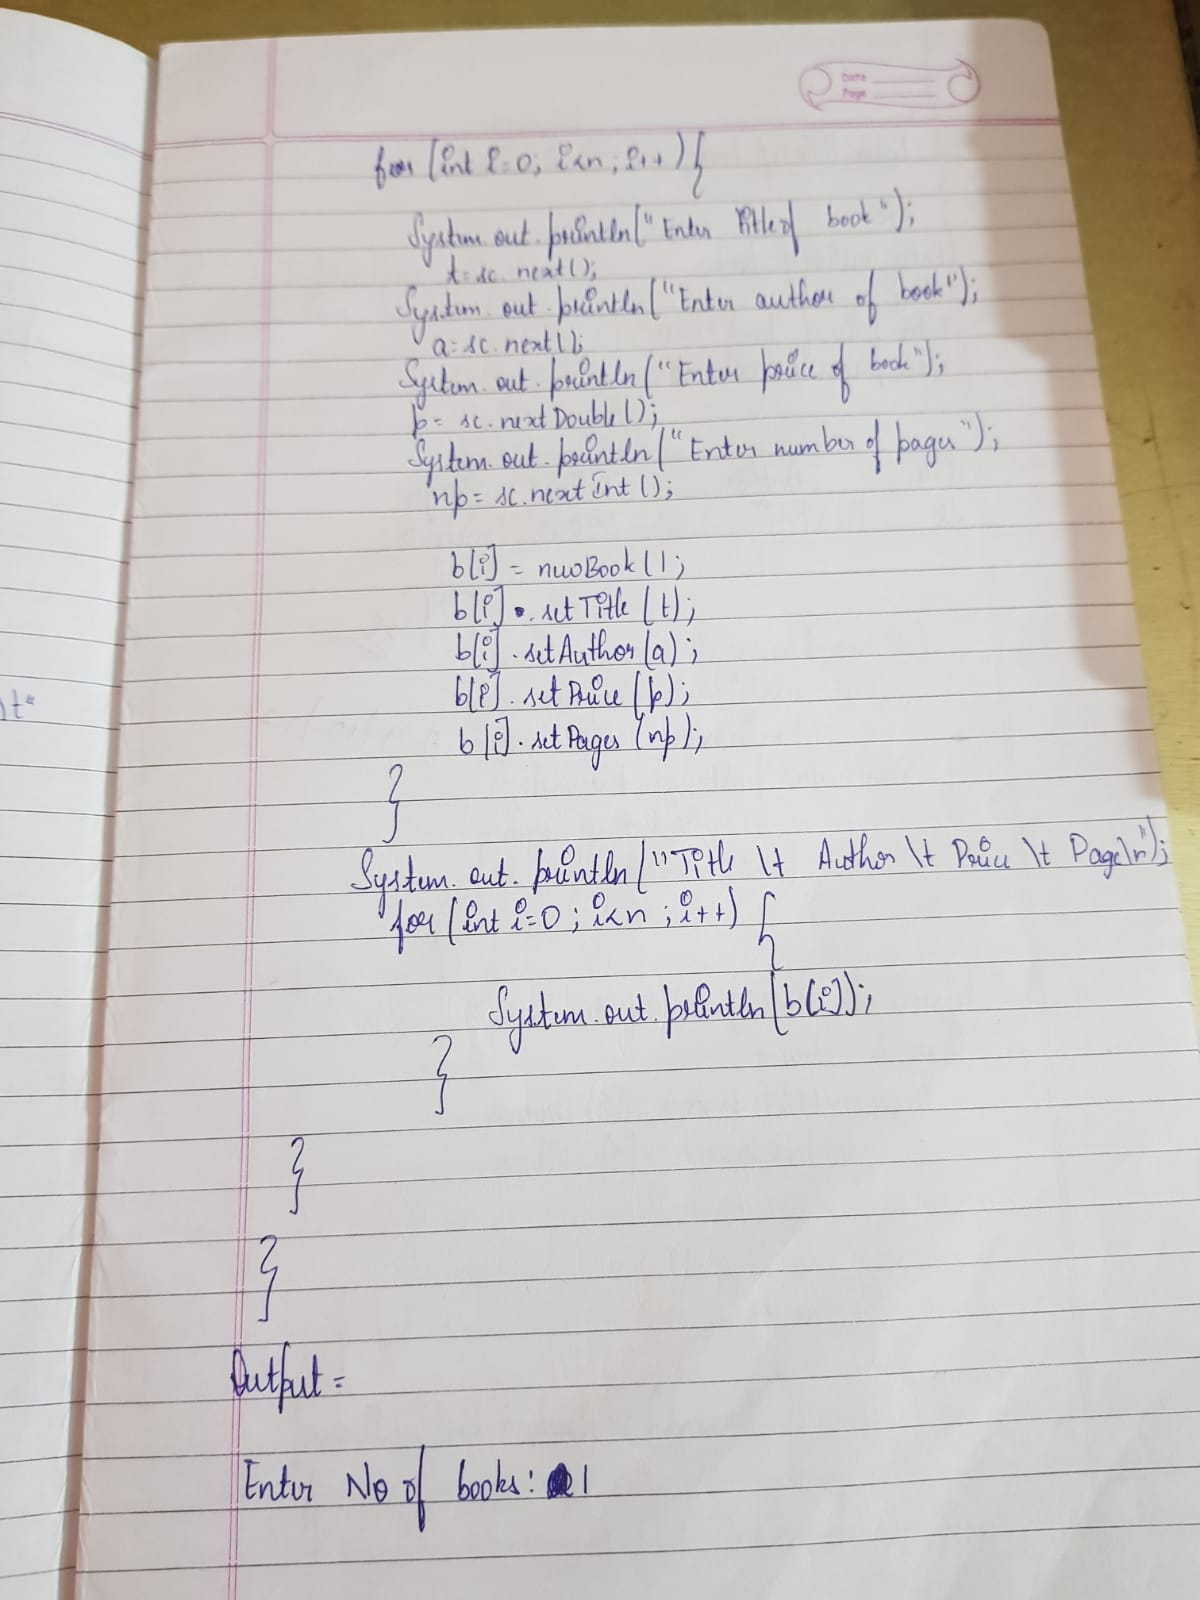 Date
Page
for (int i=0; i<n; i++) {
System.out.println("Enter Title of book");
t=sc.next();
System.out.println("Enter author of book");
a=sc.next();
System.out.println("Enter price of book");
p=sc.nextDouble();
System.out.println("Enter number of pages");
np=sc.nextInt();
b[i] = new Book();
b[i].setTitle(t);
b[i].setAuthor(a);
b[i].setPrice(p);
b[i].setPages(np);
}
System.out.println("Title \t Author \t Price \t Page\n");
for (int i=0; i<n; i++) {
System.out.println(b[i]);
}
}
}
Output =
Enter No of books: 1